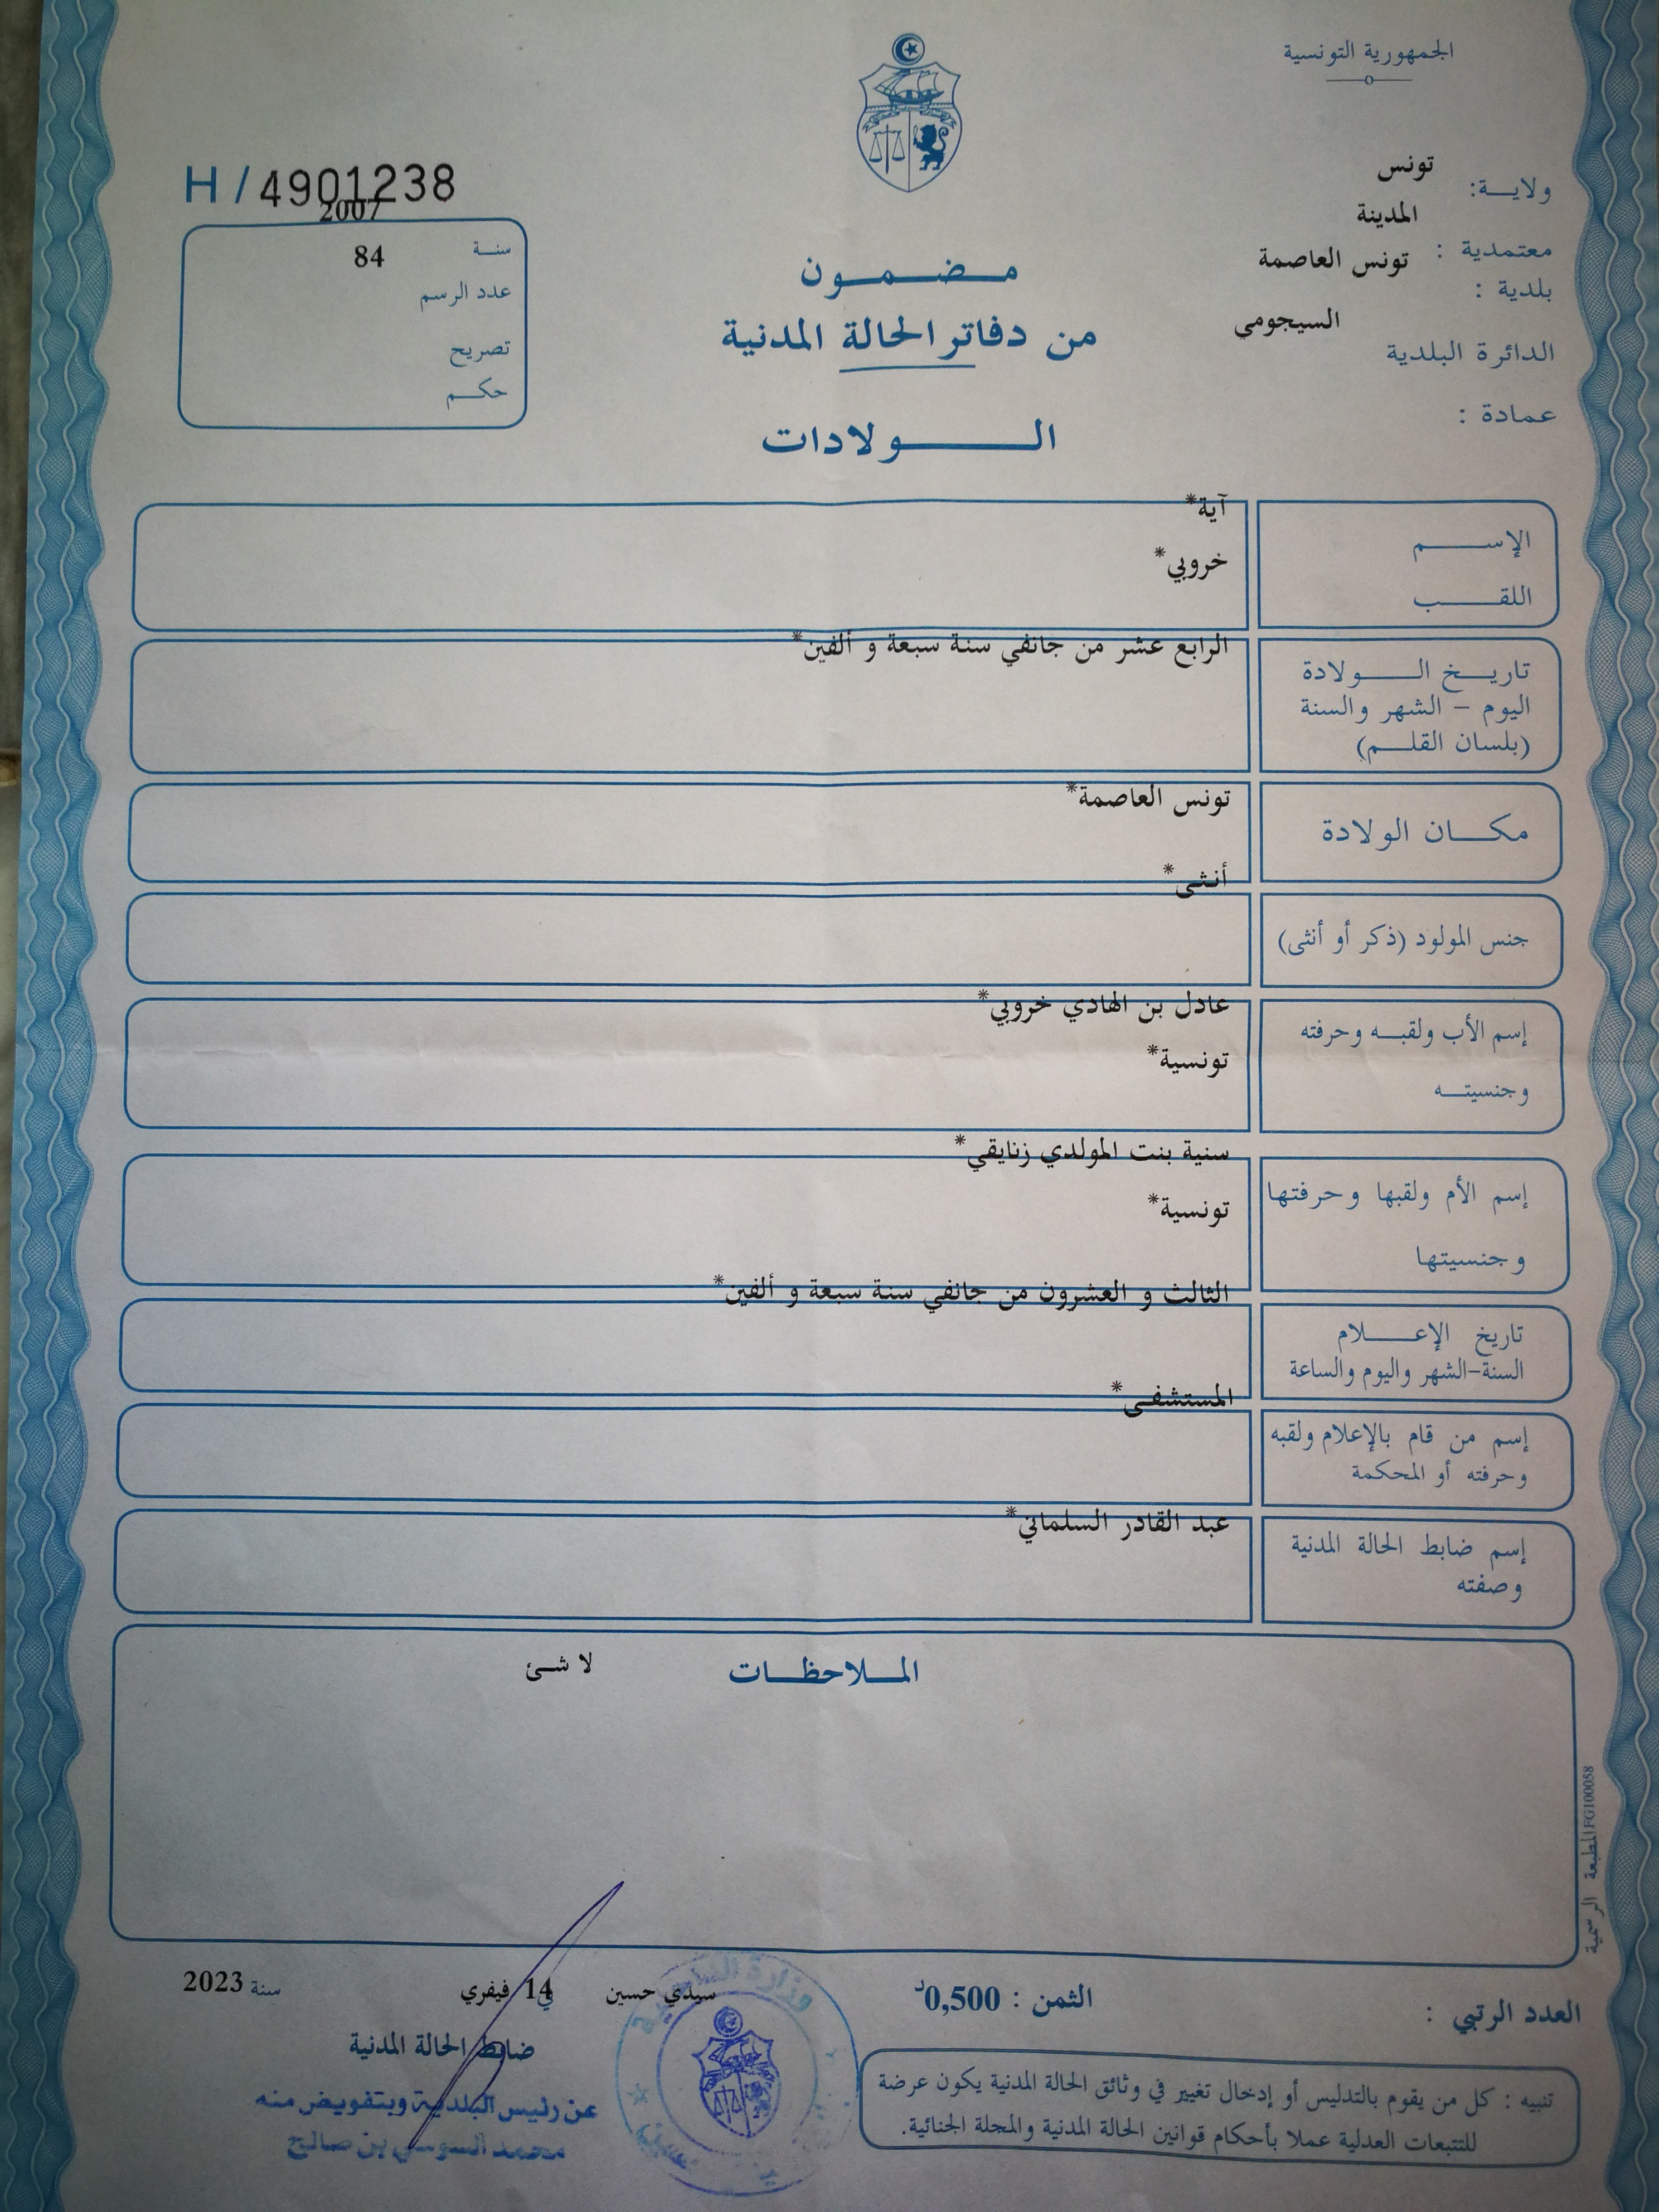 الجمهورية التونسية
ولايـــة: تونس
المدينة
معتمدية :
تونس العاصمة
بلدية :
السيجومي
الدائرة البلدية
عمادة :
H / 4901238
2007
سنــة
84
عدد الرسم
تصريح
حكـــم
مـــضـــمـــون
من دفاتر الحالة المدنية
الـــــولادات
آية*
الإســـــم
خروبي*
اللقـــــب
الرابع عشر من جانفي سنة سبعة و ألفين*
تاريـــخ الـــــولادة
اليوم – الشهر والسنة
(بلسان القلـــم)
تونس العاصمة*
مكـــان الولادة
أنثى*
جنس المولود (ذكر أو أنثى)
عادل بن الهادي خروبي*
إسم الأب ولقبـــه وحرفته
تونسية*
وجنسيتـــه
سنية بنت المولدي زنايقي*
إسم الأم ولقبها وحرفتها
تونسية*
وجنسيتها
الثالث و العشرون من جانفي سنة سبعة و ألفين*
تاريخ الإعـــــلام
السنة-الشهر واليوم والساعة
المستشفى*
إسم من قام بالإعلام ولقبه
وحرفته أو المحكمة
عبد القادر السلماني*
إسم ضابط الحالة المدنية
وصفته
المـــلاحظـــات
لا شئ
المطبعة الرسمية FG100058
العدد الرتبي :
الثمن : 0,500د
سيدي حسين في 14 فيفري سنة 2023
ضابط الحالة المدنية
عن رئيس البلدية وبتفويض منه
محمد السوسي بن صالح
وزارة
تنبيه : كل من يقوم بالتدليس أو إدخال تغيير في وثائق الحالة المدنية يكون عرضة
للتتبعات العدلية عملا بأحكام قوانين الحالة المدنية والمجلة الجنائية.